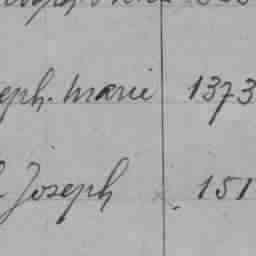 eph. Marie 1373
Joseph 151